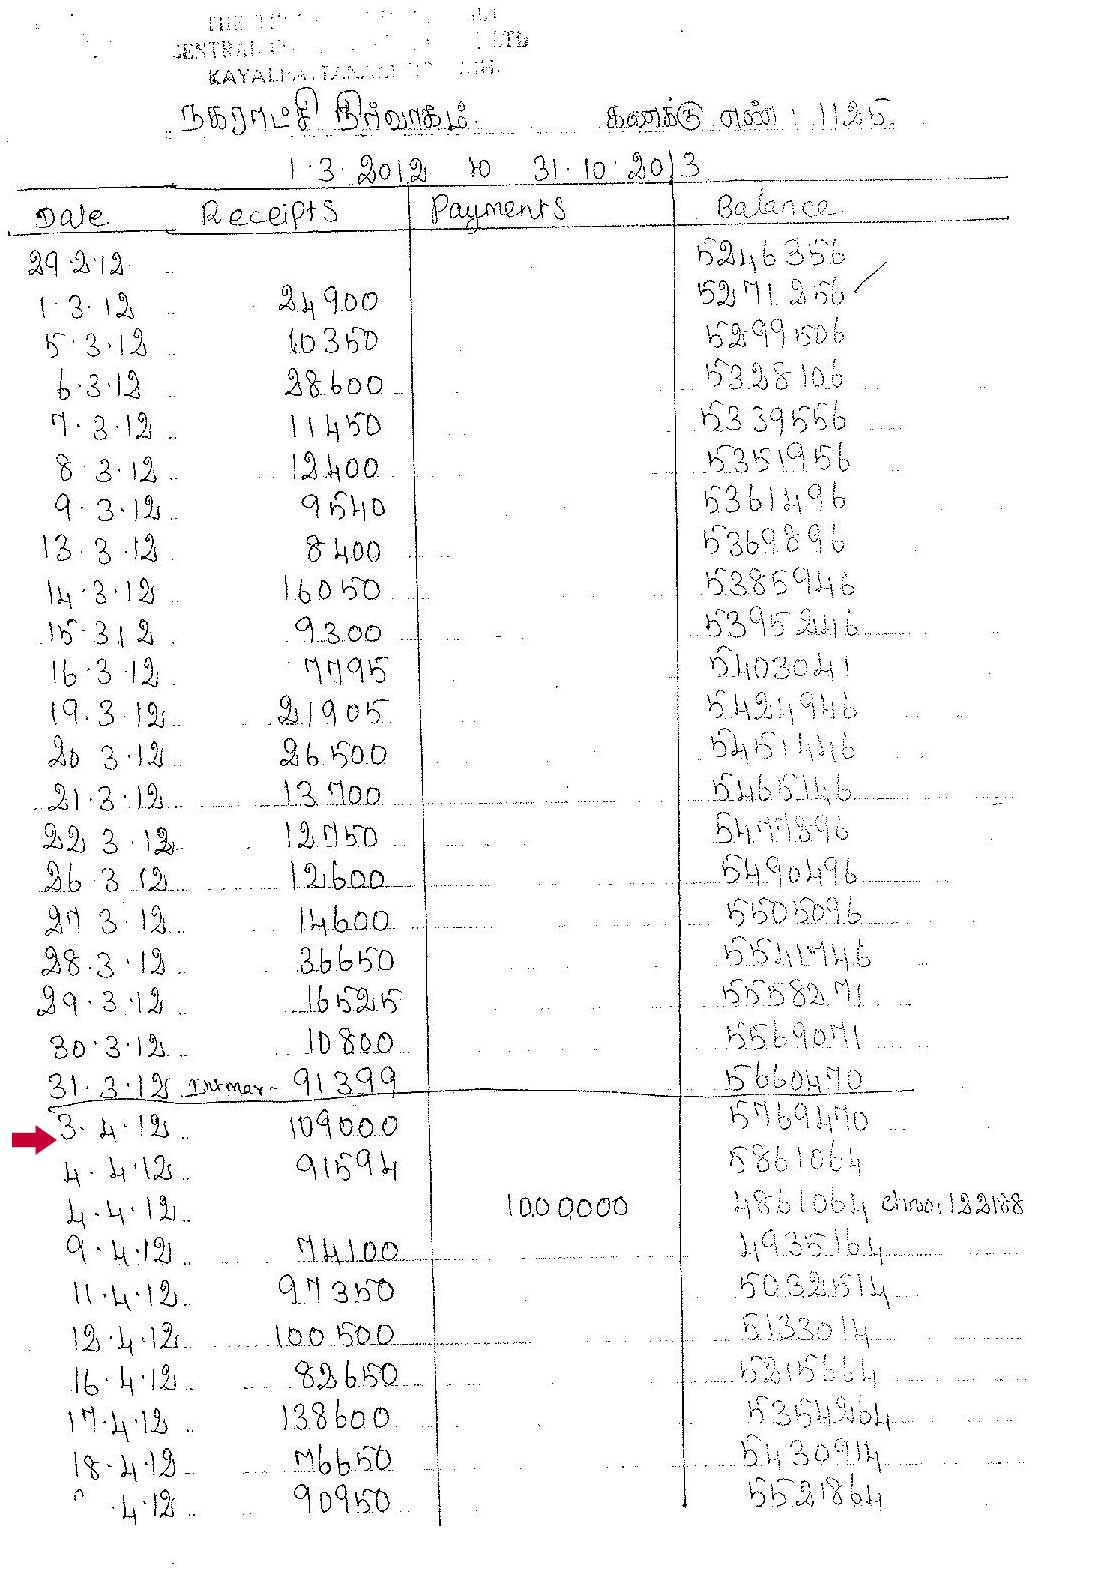 THE
CENTRAL LTD
நகராட்சி நிர்வாகம். கணக்கு எண் : 1125.
1.3.2012 to 31.10.2013
Date Receipts Payments Balance
29.2.12 5246356
1.3.12 24900 5271256
5.3.12 10350 5299506
6.3.12 28600 5328106
7.3.12 11450 5339556
8.3.12 12400 5351956
9.3.12 9540 5361496
13.3.12 8400 5369896
14.3.12 16050 5385946
15.3.12 9300 5395246
16.3.12 7795 5403041
19.3.12 21905 5424946
20 3.12 26500 5451446
21.3.12 13700 5465146
22 3.12 12750 5477896
26.3 12 12600 5490496
27 3.12 14600 5505096
28.3.12 36650 5541746
29.3.12 16525 5558271
30.3.12 10800 5569071
31.3.12 91399 5660470
3.4.12 109000 5769470
4.4.12 91594 5861064
4.4.12 1000000 4861064 chno:122188
9.4.12 74100 4935164
11.4.12 97350 5032514
12.4.12 100500 5133014
16.4.12 82650 5215664
17.4.12 138600 5354264
18.4.12 76650 5430914
.4.12 90950 5521864